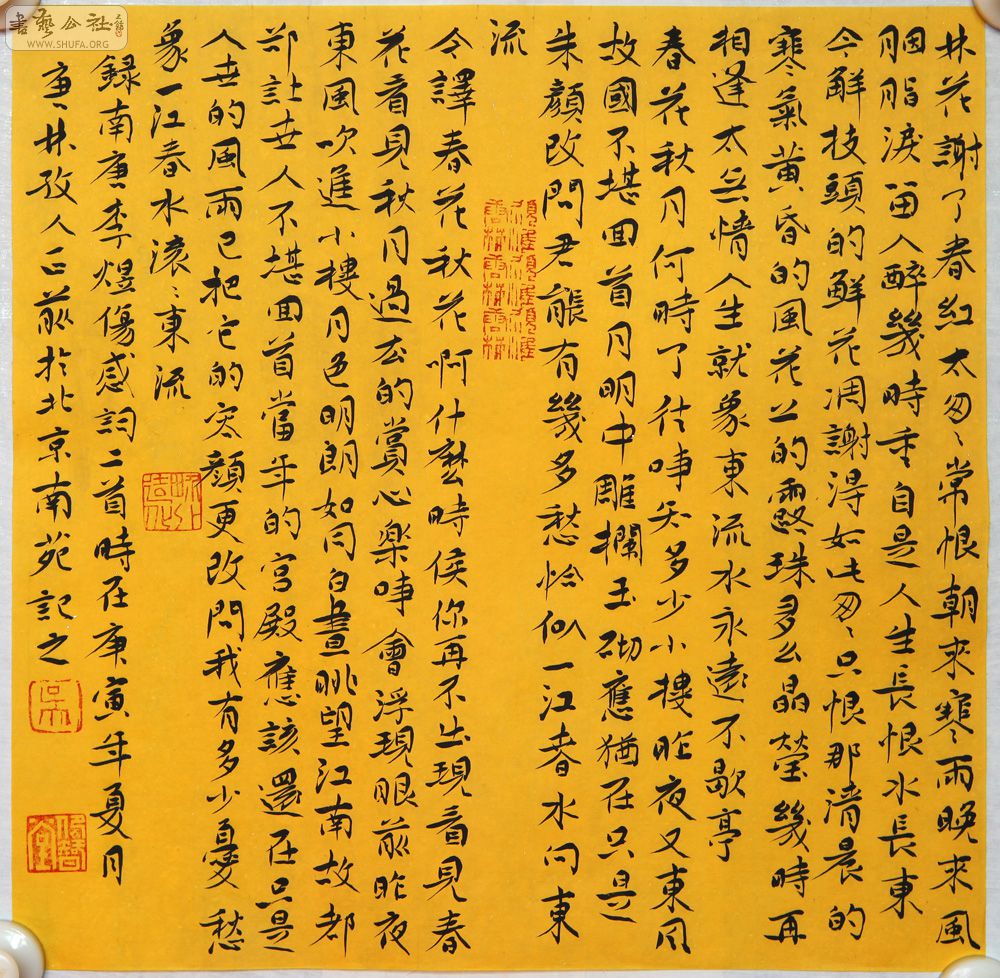 書藝公社
WWW.SHUFA.ORG
林花謝了春紅太匆〻常恨朝來寒雨晚來風
胭脂淚留人醉幾時重自是人生長恨水長東
今解枝頭的鮮花凋謝得如此匆〻只恨那清晨的
寒氣黃昏的風花上的露珠多么晶瑩幾時再
相逢太無情人生就象東流水永遠不歇亭
春花秋月何時了往事知多少小樓昨夜又東风
故國不堪回首月明中雕欄玉砌應猶在只是
朱顏改問君能有幾多愁恰似一江春水向東
流
今譯春花秋花啊什麼時侯你再不出現看見春
花看見秋月過去的賞心樂事會浮現眼前昨夜
東風吹進小樓月色明朗如同白晝眺望江南故都
卻让世人不堪回首當年的宮殿應該還在只是
人世的風雨已把它的容顏更改問我有多少憂愁
象一江春水滚〻東流
錄南唐李煜傷感詞二首時在庚寅年夏月
唐林孜人正前於北京南苑記之